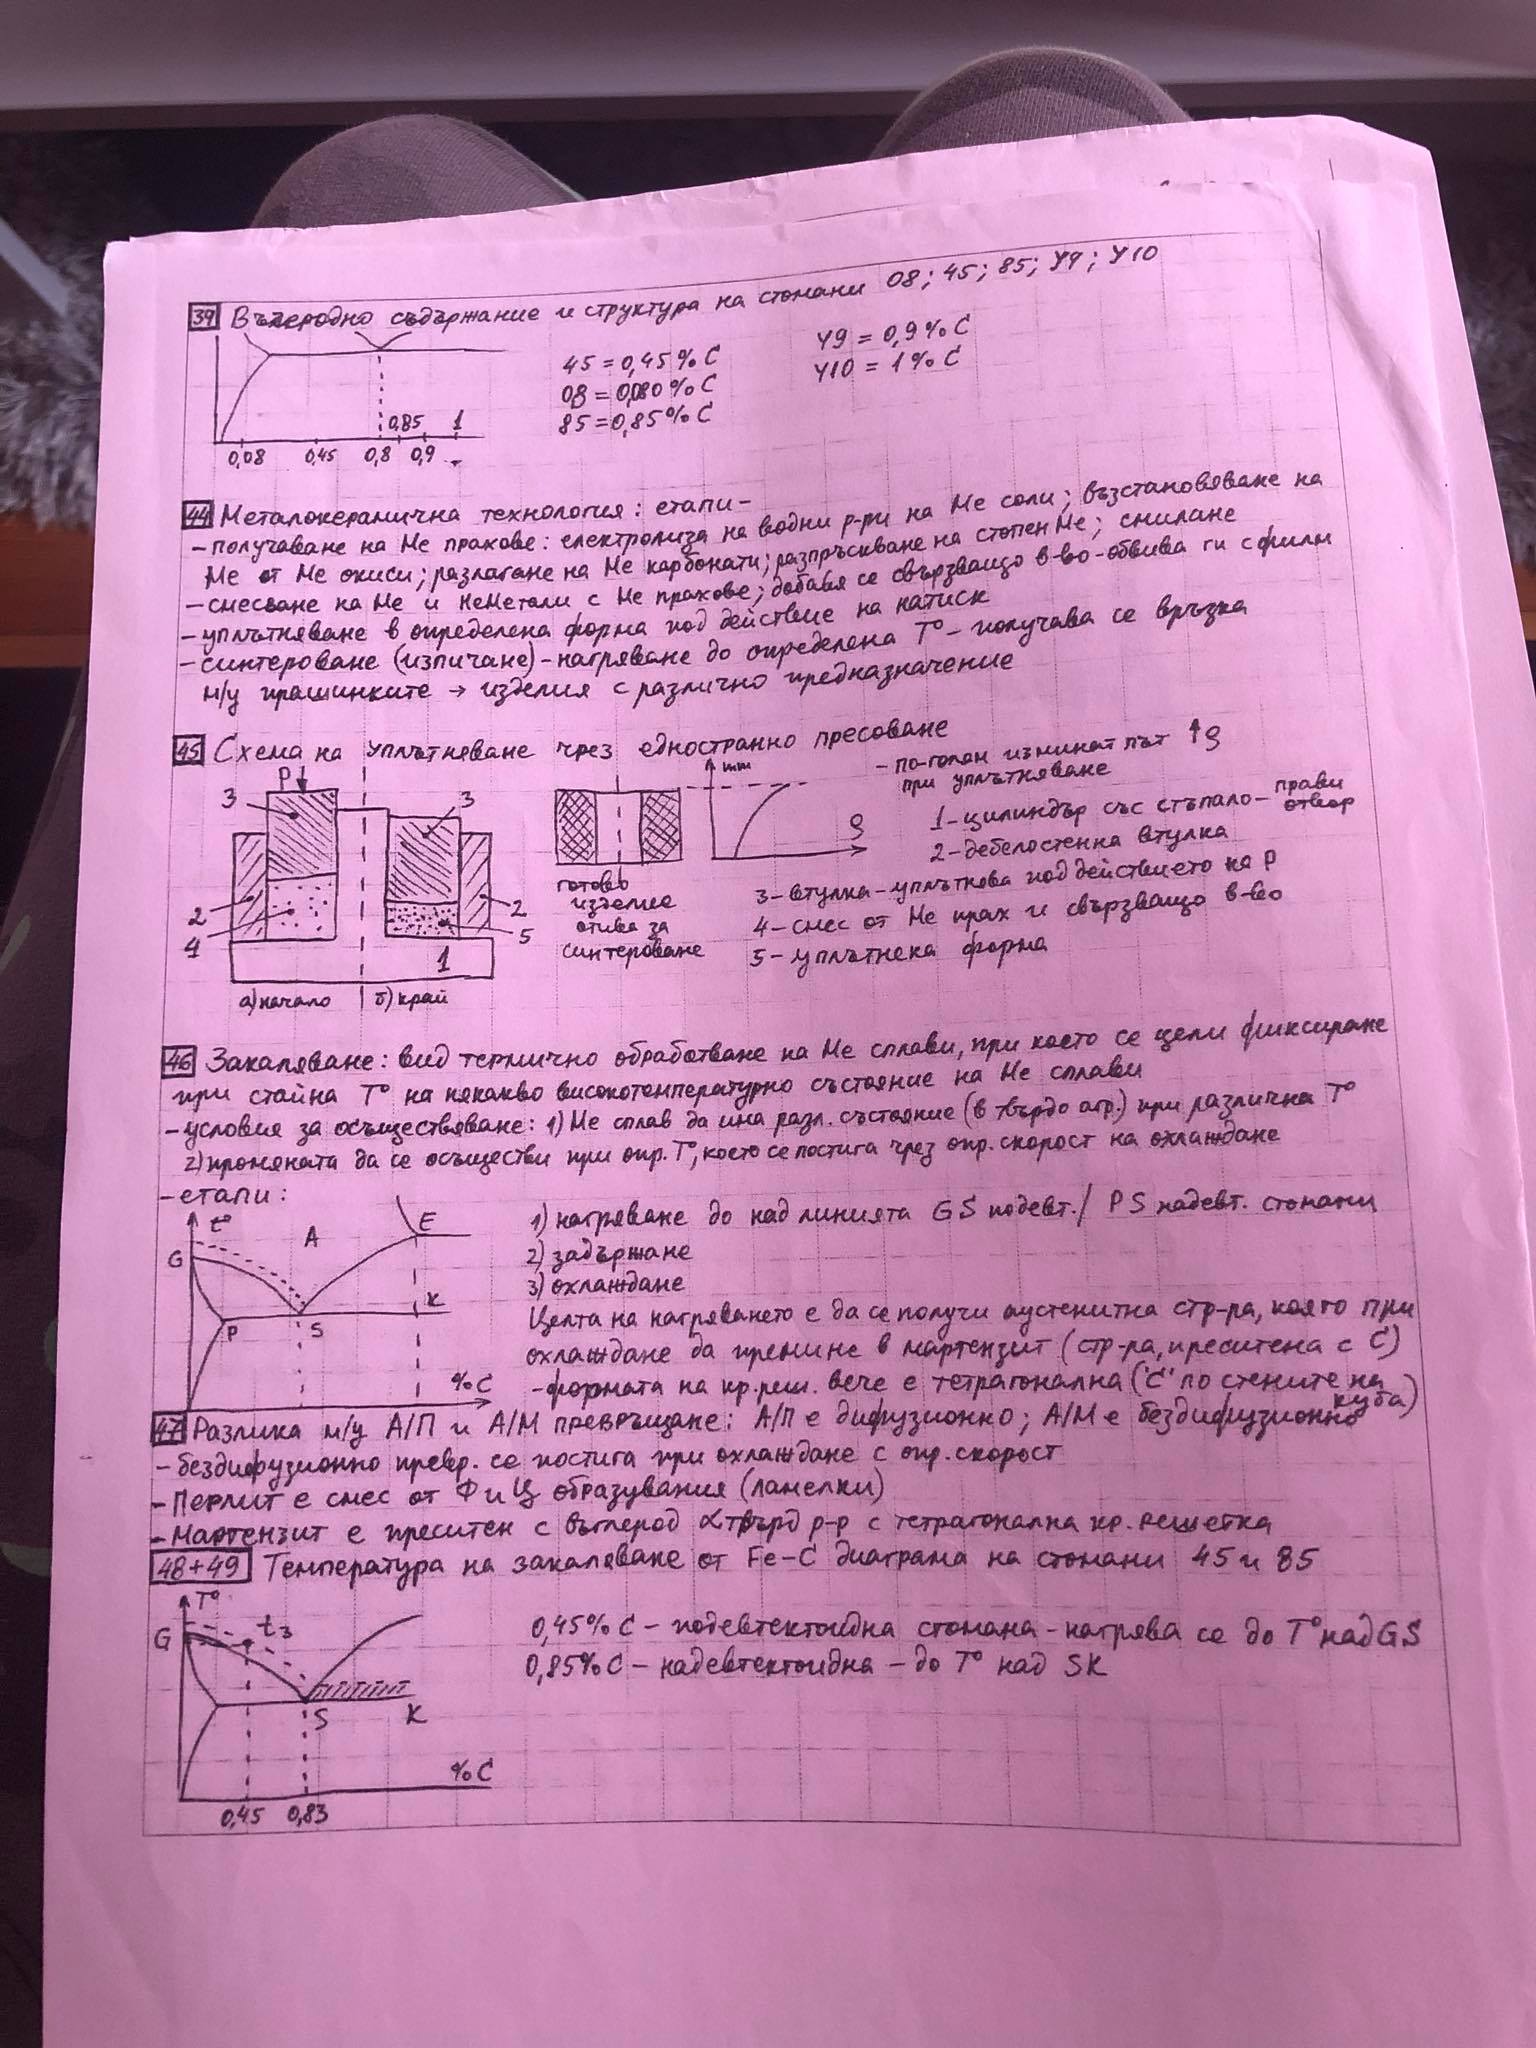 39 Въглеродно съдържание и структура на стомани 08; 45; 85; У9; У10
45 = 0,45 % C
08 = 0,080 % C
85 = 0,85 % C
У9 = 0,9 % C
У10 = 1 % C
0,85 1
0,08 0,45 0,8 0,9
44 Металокерамична технология: етапи-
- получаване на Ме прахове: електролиза на водни р-ри на Ме соли; възстановяване на
Ме от Ме окиси; разлагане на Ме карбонати; разпръскване на стопен Ме; смилане
- смесване на Ме и неметали с Ме прахове; добавя се свързващо в-во - обвива ги с филм
- уплътняване в определена форма под действие на натиск
- синтероване (изпичане) - нагряване до определена T° - получава се връзка
м/у прашинките → изделия с различно предназначение
45 Схема на уплътняване чрез едностранно пресоване
P
3 3
2 2
4 5
1
а) начало б) край
готово
изделие
отива за
синтероване
mm
ρ
- по-голям изминат път ↑ρ
при уплътняване
1 - цилиндър със стъпало - прави
отвор
2 - дебелостенна втулка
3 - втулка - уплътнява под действието на P
4 - смес от Ме прах и свързващо в-во
5 - уплътнена форма
46 Закаляване: вид термично обработване на Ме сплави, при което се цели фиксиране
при стайна T° на някакво високотемпературно състояние на Ме сплави
- условия за осъществяване: 1) Ме сплав да има разл. състояние (в твърдо агр.) при различна T°
2) промяната да се осъществи при опр. T°, което се постига чрез опр. скорост на охлаждане
- етапи:
t° A E
G
P S K
% C
1) нагряване до над линията GS подевт. / PS надевт. стомани
2) задържане
3) охлаждане
Целта на нагряването е да се получи аустенитна стр-ра, която при
охлаждане да премине в мартензит (стр-ра, преситена с C)
- формата на кр. реш. вече е тетрагонална ("C" по стените на
куба)
47 Разлика м/у А/П и А/М превръщане: А/П е дифузионно; А/М е бездифузионно
- бездифузионно превр. се постига при охлаждане с опр. скорост
- Перлит е смес от Ф и Ц образувания (ламелки)
- Мартензит е преситен с въглерод α твърд р-р с тетрагонална кр. решетка
48+49 Температура на закаляване от Fe-C диаграма на стомани 45 и 85
T°
G tз
S K
% C
0,45 0,83
0,45% C - подевтектоидна стомана - нагрява се до T° над GS
0,85% C - надевтектоидна - до T° над SK